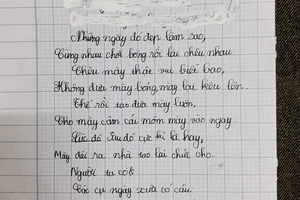 Những ngày đó đẹp làm sao,
Cùng nhau chơi bóng rồi lại chêu nhau
Chêu mày thật vui biết bao,
Không đưa mày bóng, mày lại kêu lên.
Thế rồi tao đưa mày luôn,
Cho mày câm cái mồm mày vào ngay.
Lúc đó đó cực kì là hay,
Mày đái ra nhà tao lại chữa cho.
Người ta có
Các cụ ngày xưa có câu